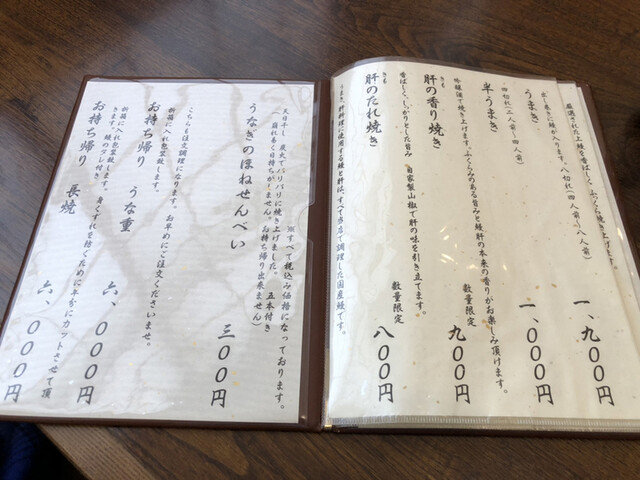 厳選された鰻を香ばしく、ふっくら焼き上げます。
うまき 一、九〇〇円
だし巻きに鰻が入ります。八切れ(四人前~八人前)
半うまき 一、〇〇〇円
四切れ(二人前~四人前)
肝の香り焼き 数量限定 九〇〇円
きも
吟醸酒で焼き上げます。ふくらみのある旨みと鰻肝の本来の香りがお楽しみ頂けます。
肝のたれ焼き 数量限定 八〇〇円
きも
香ばしく、しっかりとした旨み 自家製山椒で肝の味を引き立てます。
うまき、肝料理に使用する鰻と肝は、すべて当店で調理した国産鰻です。
※すべて税込み価格になっております。
うなぎのほねせんべい 三〇〇円
天日干し 炭火でパリパリに焼き上げました。 五本付き
(崩れ易く日持ちがしません。お持ち帰り出来ません)
お持ち帰り うな重 六、〇〇〇円
こちらも注文調理になります。お早めにご注文くださいませ。
折箱に入れ包装致します。
お持ち帰り 長焼 六、〇〇〇円
折箱に入れ包装致します。身くずれを防ぐために半分にカットさせて頂
きます。鰻のタレ付き